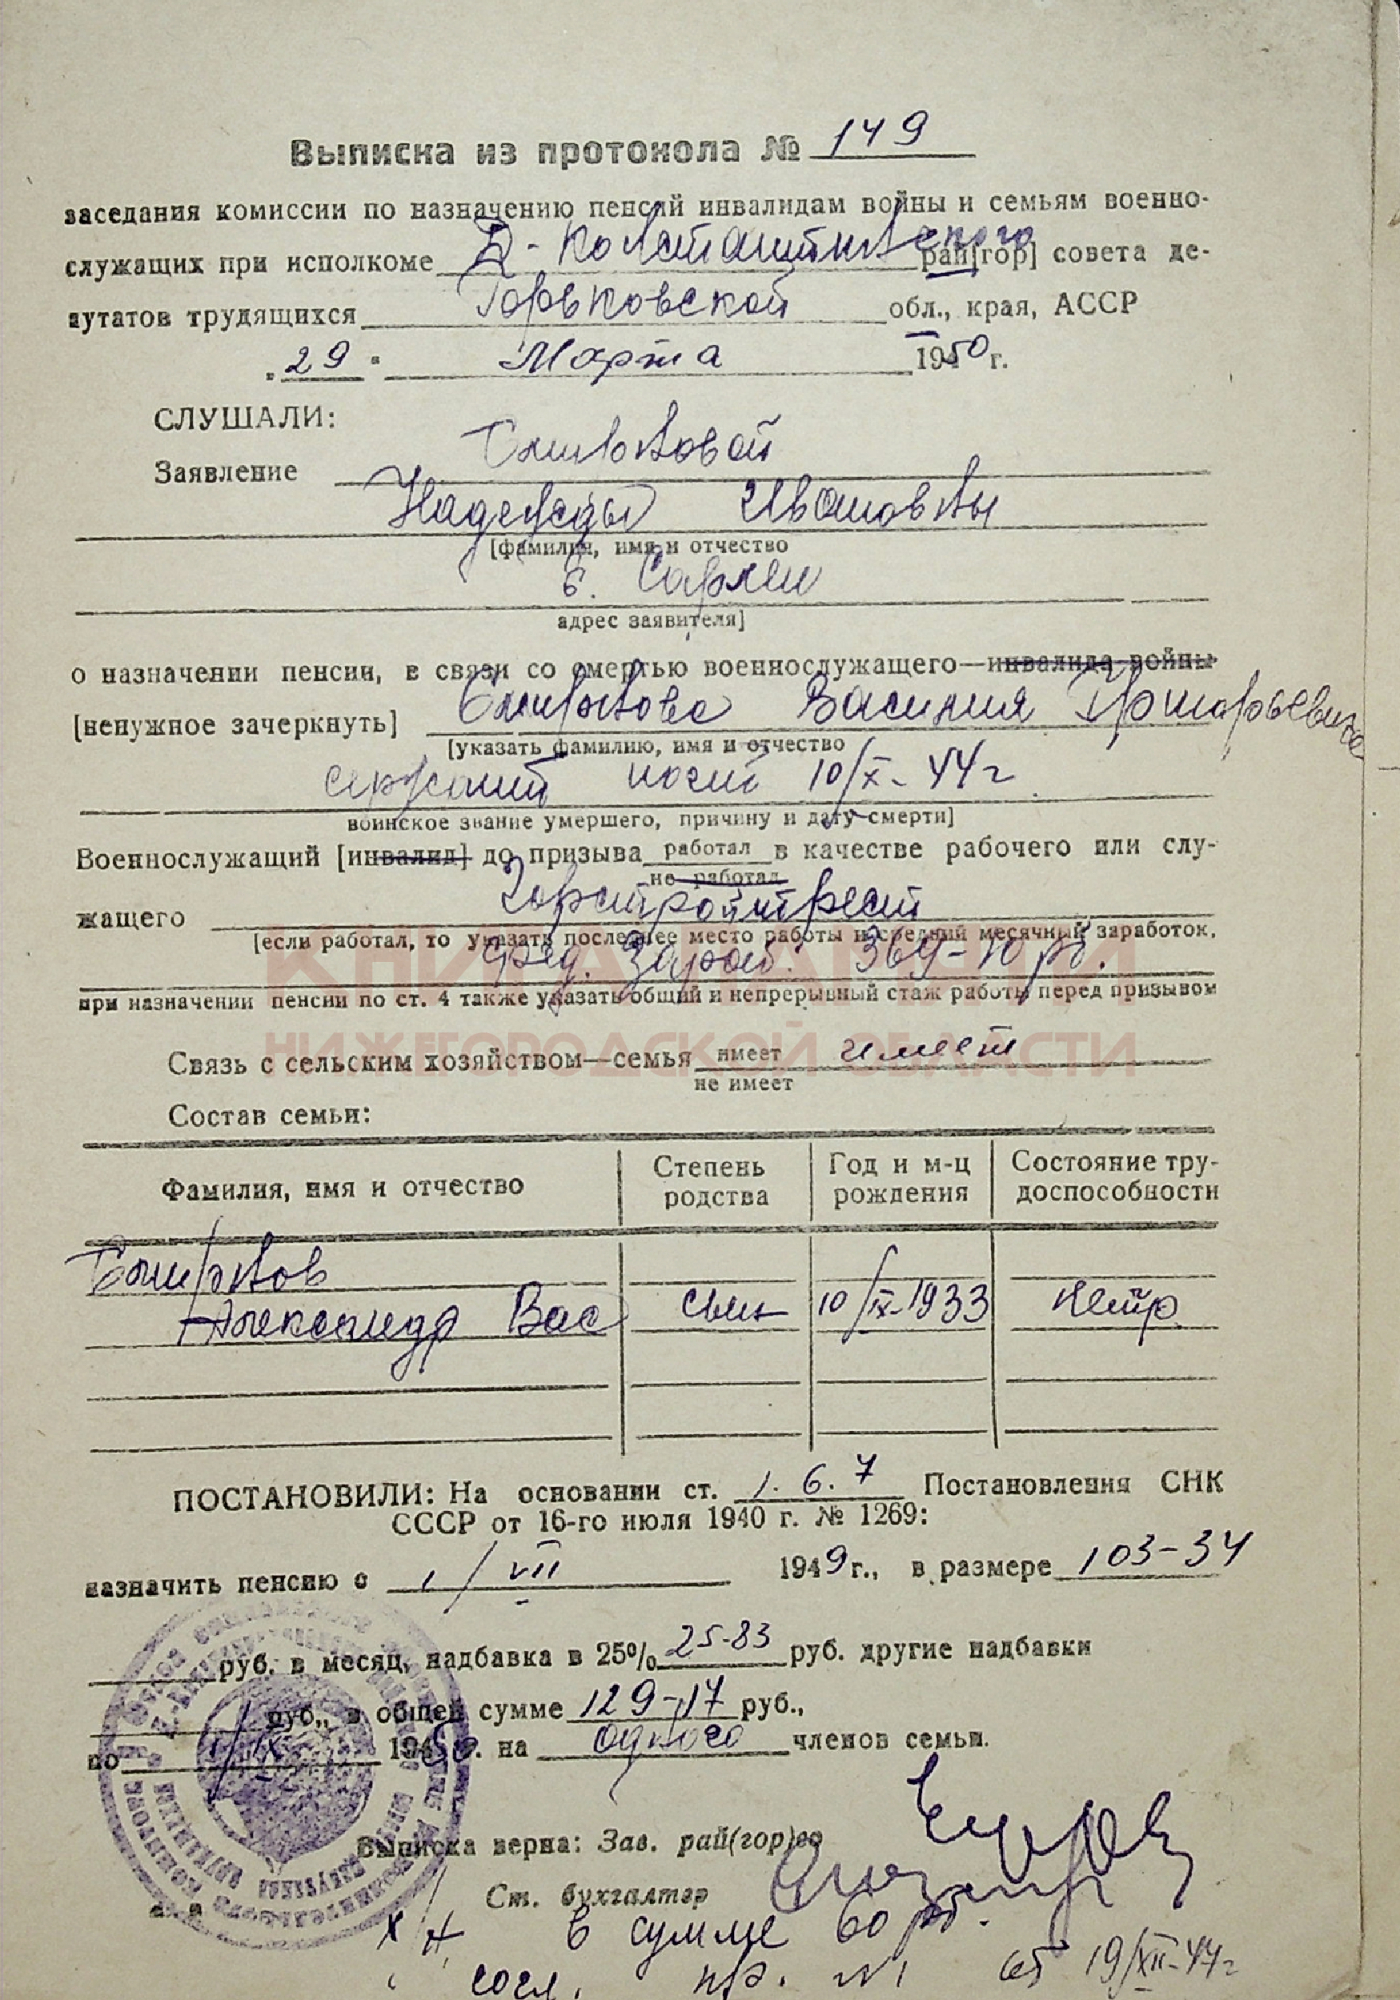 Выписка из протокола № 149
заседания комиссии по назначению пенсий инвалидам войны и семьям военно-
служащих при исполкоме Д-Константиновского рай[гор] совета де-
путатов трудящихся Горьковской обл., края, АССР
„29" Марта 1950 г.
СЛУШАЛИ:
Заявление Смирновой
Надежды Ивановны
[фамилия, имя и отчество
с. Сарлеи
адрес заявителя]
о назначении пенсии, в связи со смертью военнослужащего—инвалида войны
[ненужное зачеркнуть] Смирнова Василия Григорьевича
[указать фамилию, имя и отчество
сержант погиб 10/X-44 г
воинское звание умершего, причину и дату смерти]
Военнослужащий [инвалид] до призыва работал в качестве рабочего или слу-
не работал
жащего Горстройтрест
[если работал, то указать последнее место работы и средний месячный заработок,
сред. Зараб. 369-10 рб.
при назначении пенсии по ст. 4 также указать общий и непрерывный стаж работы перед призывом
КНИГА ПАМЯТИ
НИЖЕГОРОДСКОЙ ОБЛАСТИ
Связь с сельским хозяйством—семья имеет имеет
не имеет
Состав семьи:
Фамилия, имя и отчество Степень родства Год и м-ц рождения Состояние тру-доспособности
Смирнов
Александр Вас сын 10/IX-1933 нетр.
ПОСТАНОВИЛИ: На основании ст. 1. 6. 7 Постановления СНК
СССР от 16-го июля 1940 г. № 1269:
назначить пенсию с 1/VII 1949 г., в размере 103-34
руб. в месяц, надбавка в 25% 25-83 руб. другие надбавки
руб., в общей сумме 129-17 руб.,
по 1/IX 1950. на одного членов семьи.
Выписка верна: Зав. рай(гор)со
Ст. бухгалтер
х/н в сумме 60 рб.
согл. пр. №1 от 19/XII-47г